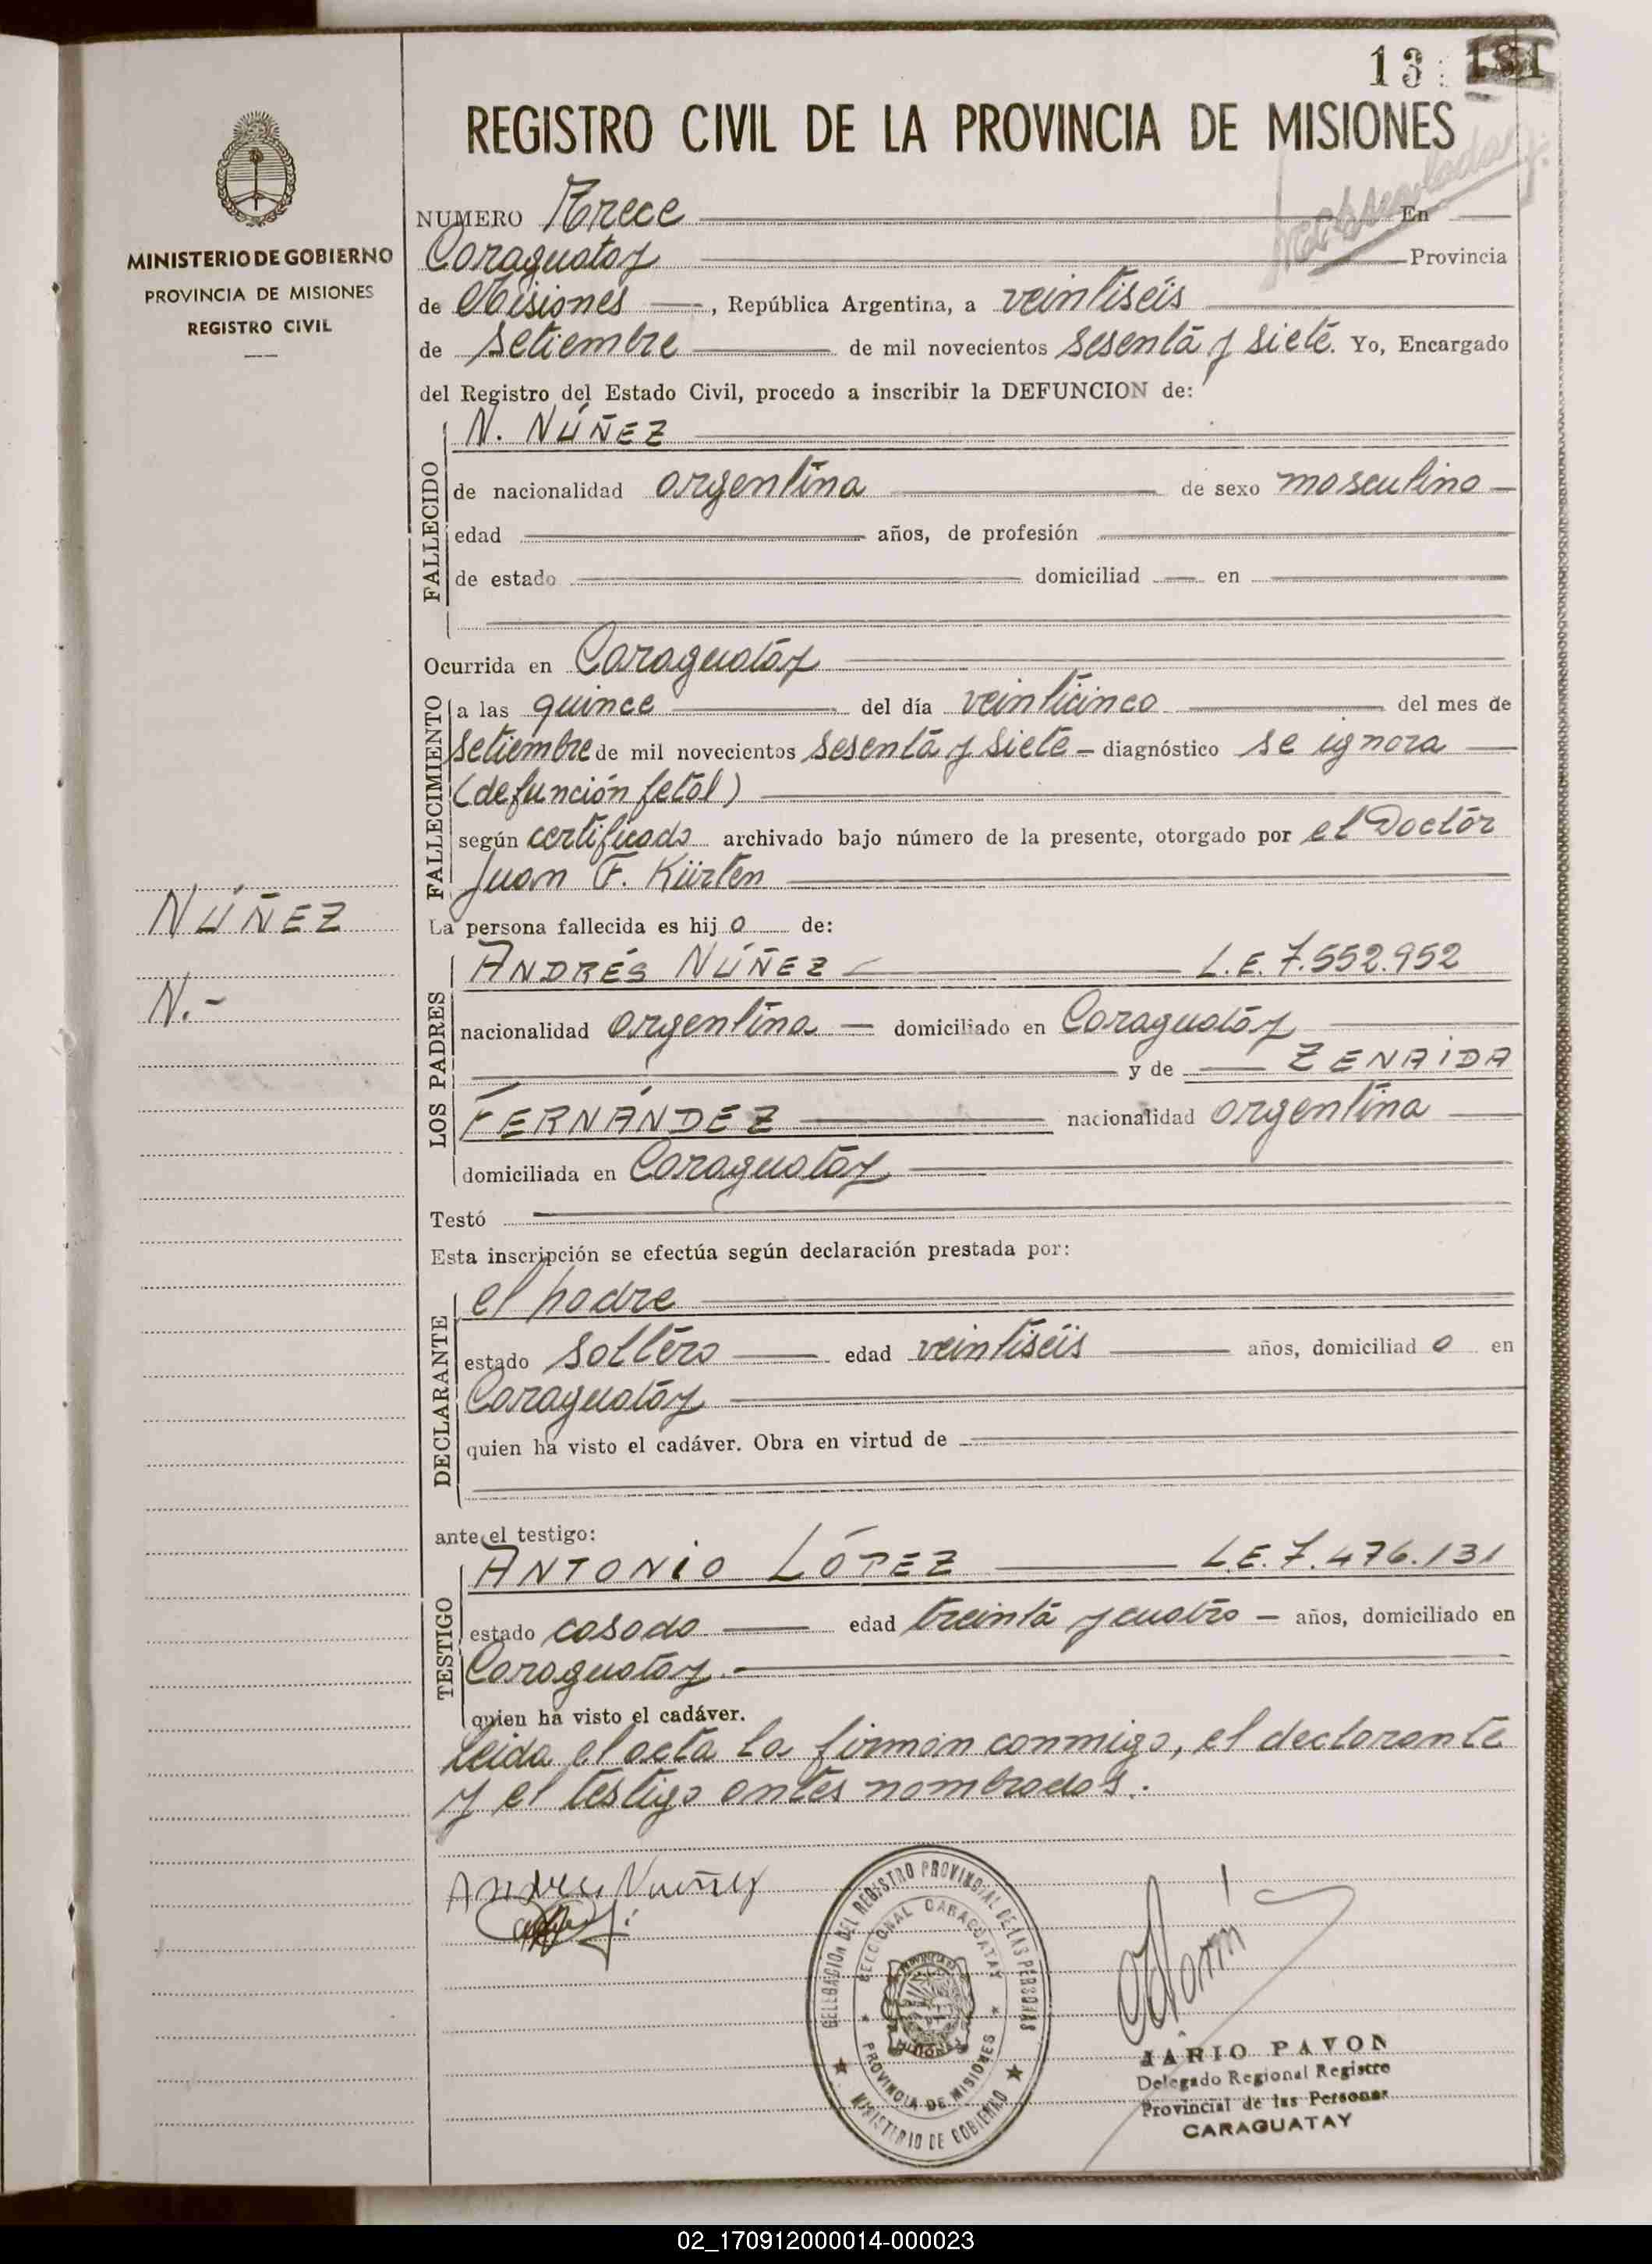 13
REGISTRO CIVIL DE LA PROVINCIA DE MISIONES
MINISTERIO DE GOBIERNO
PROVINCIA DE MISIONES
REGISTRO CIVIL
NUMERO Trece En
Caraguatay Provincia
de Misiones, República Argentina, a veintiseis
de setiembre de mil novecientos sesenta y siete. Yo, Encargado
del Registro del Estado Civil, procedo a inscribir la DEFUNCION de:
FALLECIDO
N. NÚÑEZ
de nacionalidad argentina de sexo masculino
edad años, de profesión
de estado domiciliad en
Ocurrida en Caraguatay
FALLECIMIENTO
a las quince del día veinticinco del mes de
setiembre de mil novecientos sesenta y siete - diagnóstico se ignora
(defunción fetal)
según certificado archivado bajo número de la presente, otorgado por el Doctor
Juan F. Kürten
NÚÑEZ
N.-
La persona fallecida es hijo de:
LOS PADRES
ANDRÉS NÚÑEZ L.E. 7.552.952
nacionalidad argentina - domiciliado en Caraguatay
y de ZENAIDA
FERNÁNDEZ nacionalidad argentina
domiciliada en Caraguatay
Testó
Esta inscripción se efectúa según declaración prestada por:
DECLARANTE
el padre
estado soltero edad veintiseis años, domiciliado en
Caraguatay
quien ha visto el cadáver. Obra en virtud de
ante el testigo:
TESTIGO
ANTONIO LÓPEZ L.E. 7.476.131
estado casado edad treinta y cuatro - años, domiciliado en
Caraguatay.-
quien ha visto el cadáver.
Leida el acta la firman conmigo, el declarante
y el testigo antes nombrados.
Andres Nuñez
DELEGACION DEL REGISTRO PROVINCIAL DE LAS PERSONAS
SECCIONAL CARAGUATAY
PROVINCIA DE MISIONES
MINISTERIO DE GOBIERNO
PAVON
Delegado Regional Registro
Provincial de las Personas
CARAGUATAY
02_170912000014-000023